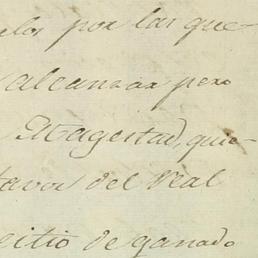 elos por las que
alcanzar pero
Magestad, quie-
tavos del Real
sitio de ganado